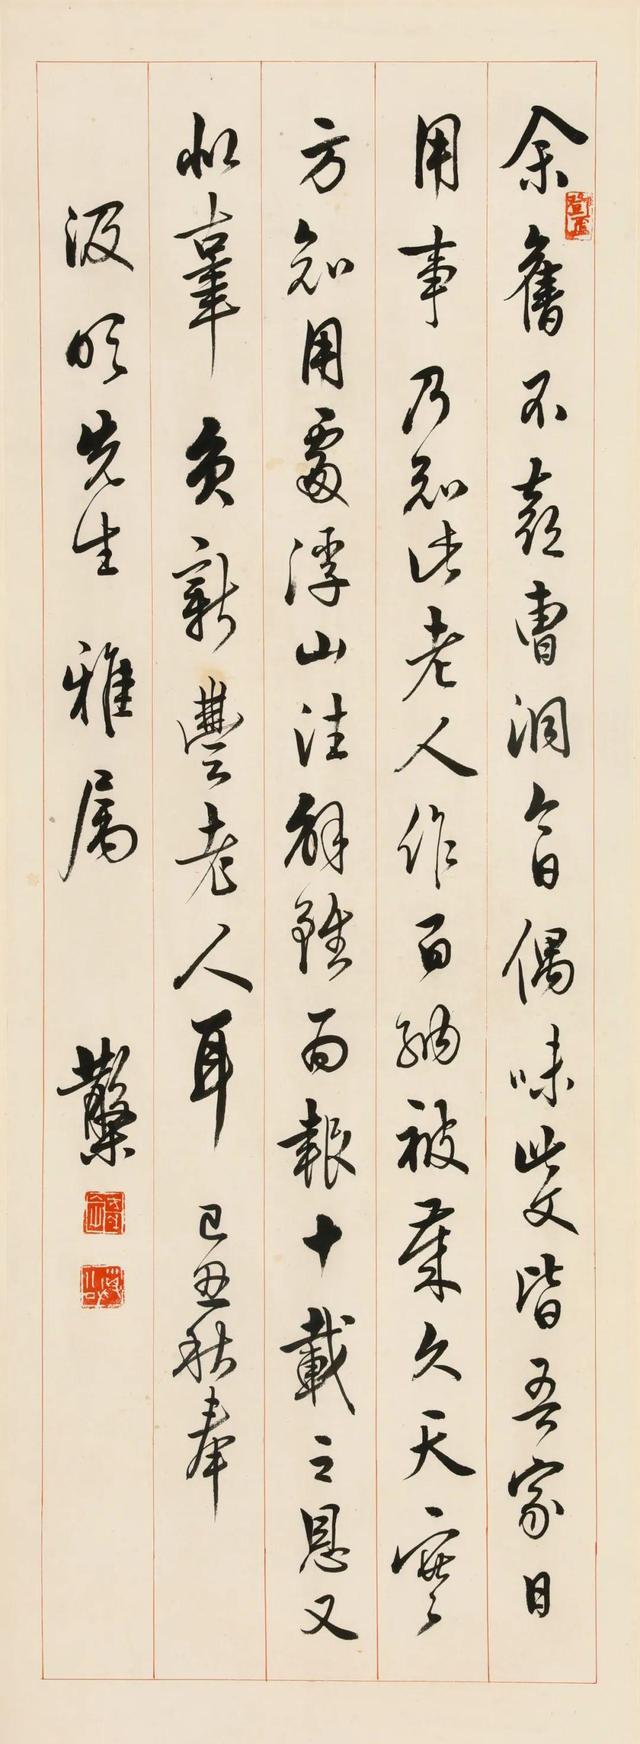 余舊不喜曹洞今日偶味此文皆吾家日
用事乃知此老人作百衲被葉久天寒
方知用處浮山注解雖為報十載之恩又
似辜負新豐老人耳 己丑秋奉
汲明先生 雅屬